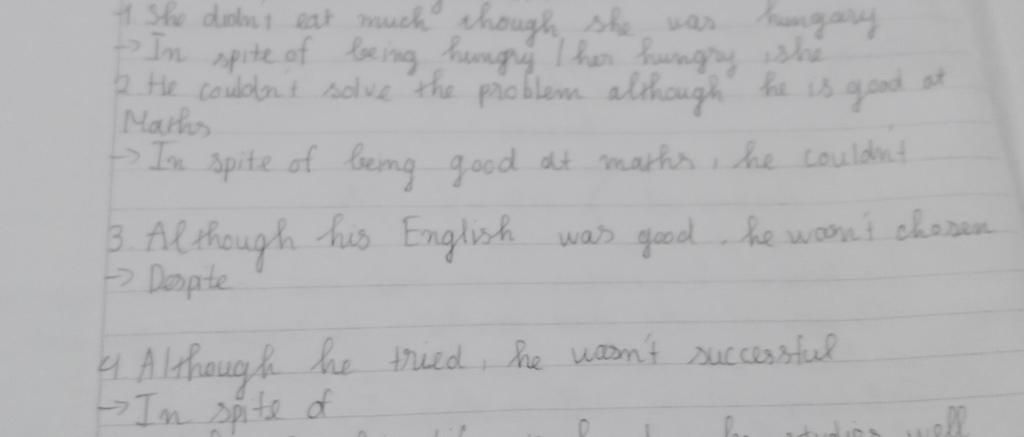 1 She didn't eat much though she was hungary
→ In spite of being hungry / her hungry, she
2 He couldn't solve the problem although he is good at
Maths
→ In spite of being good at maths, he couldn't
3. Although his English was good, he wasn't chosen
→ Despite
4 Although he tried, he wasn't successful
→ In spite of
well